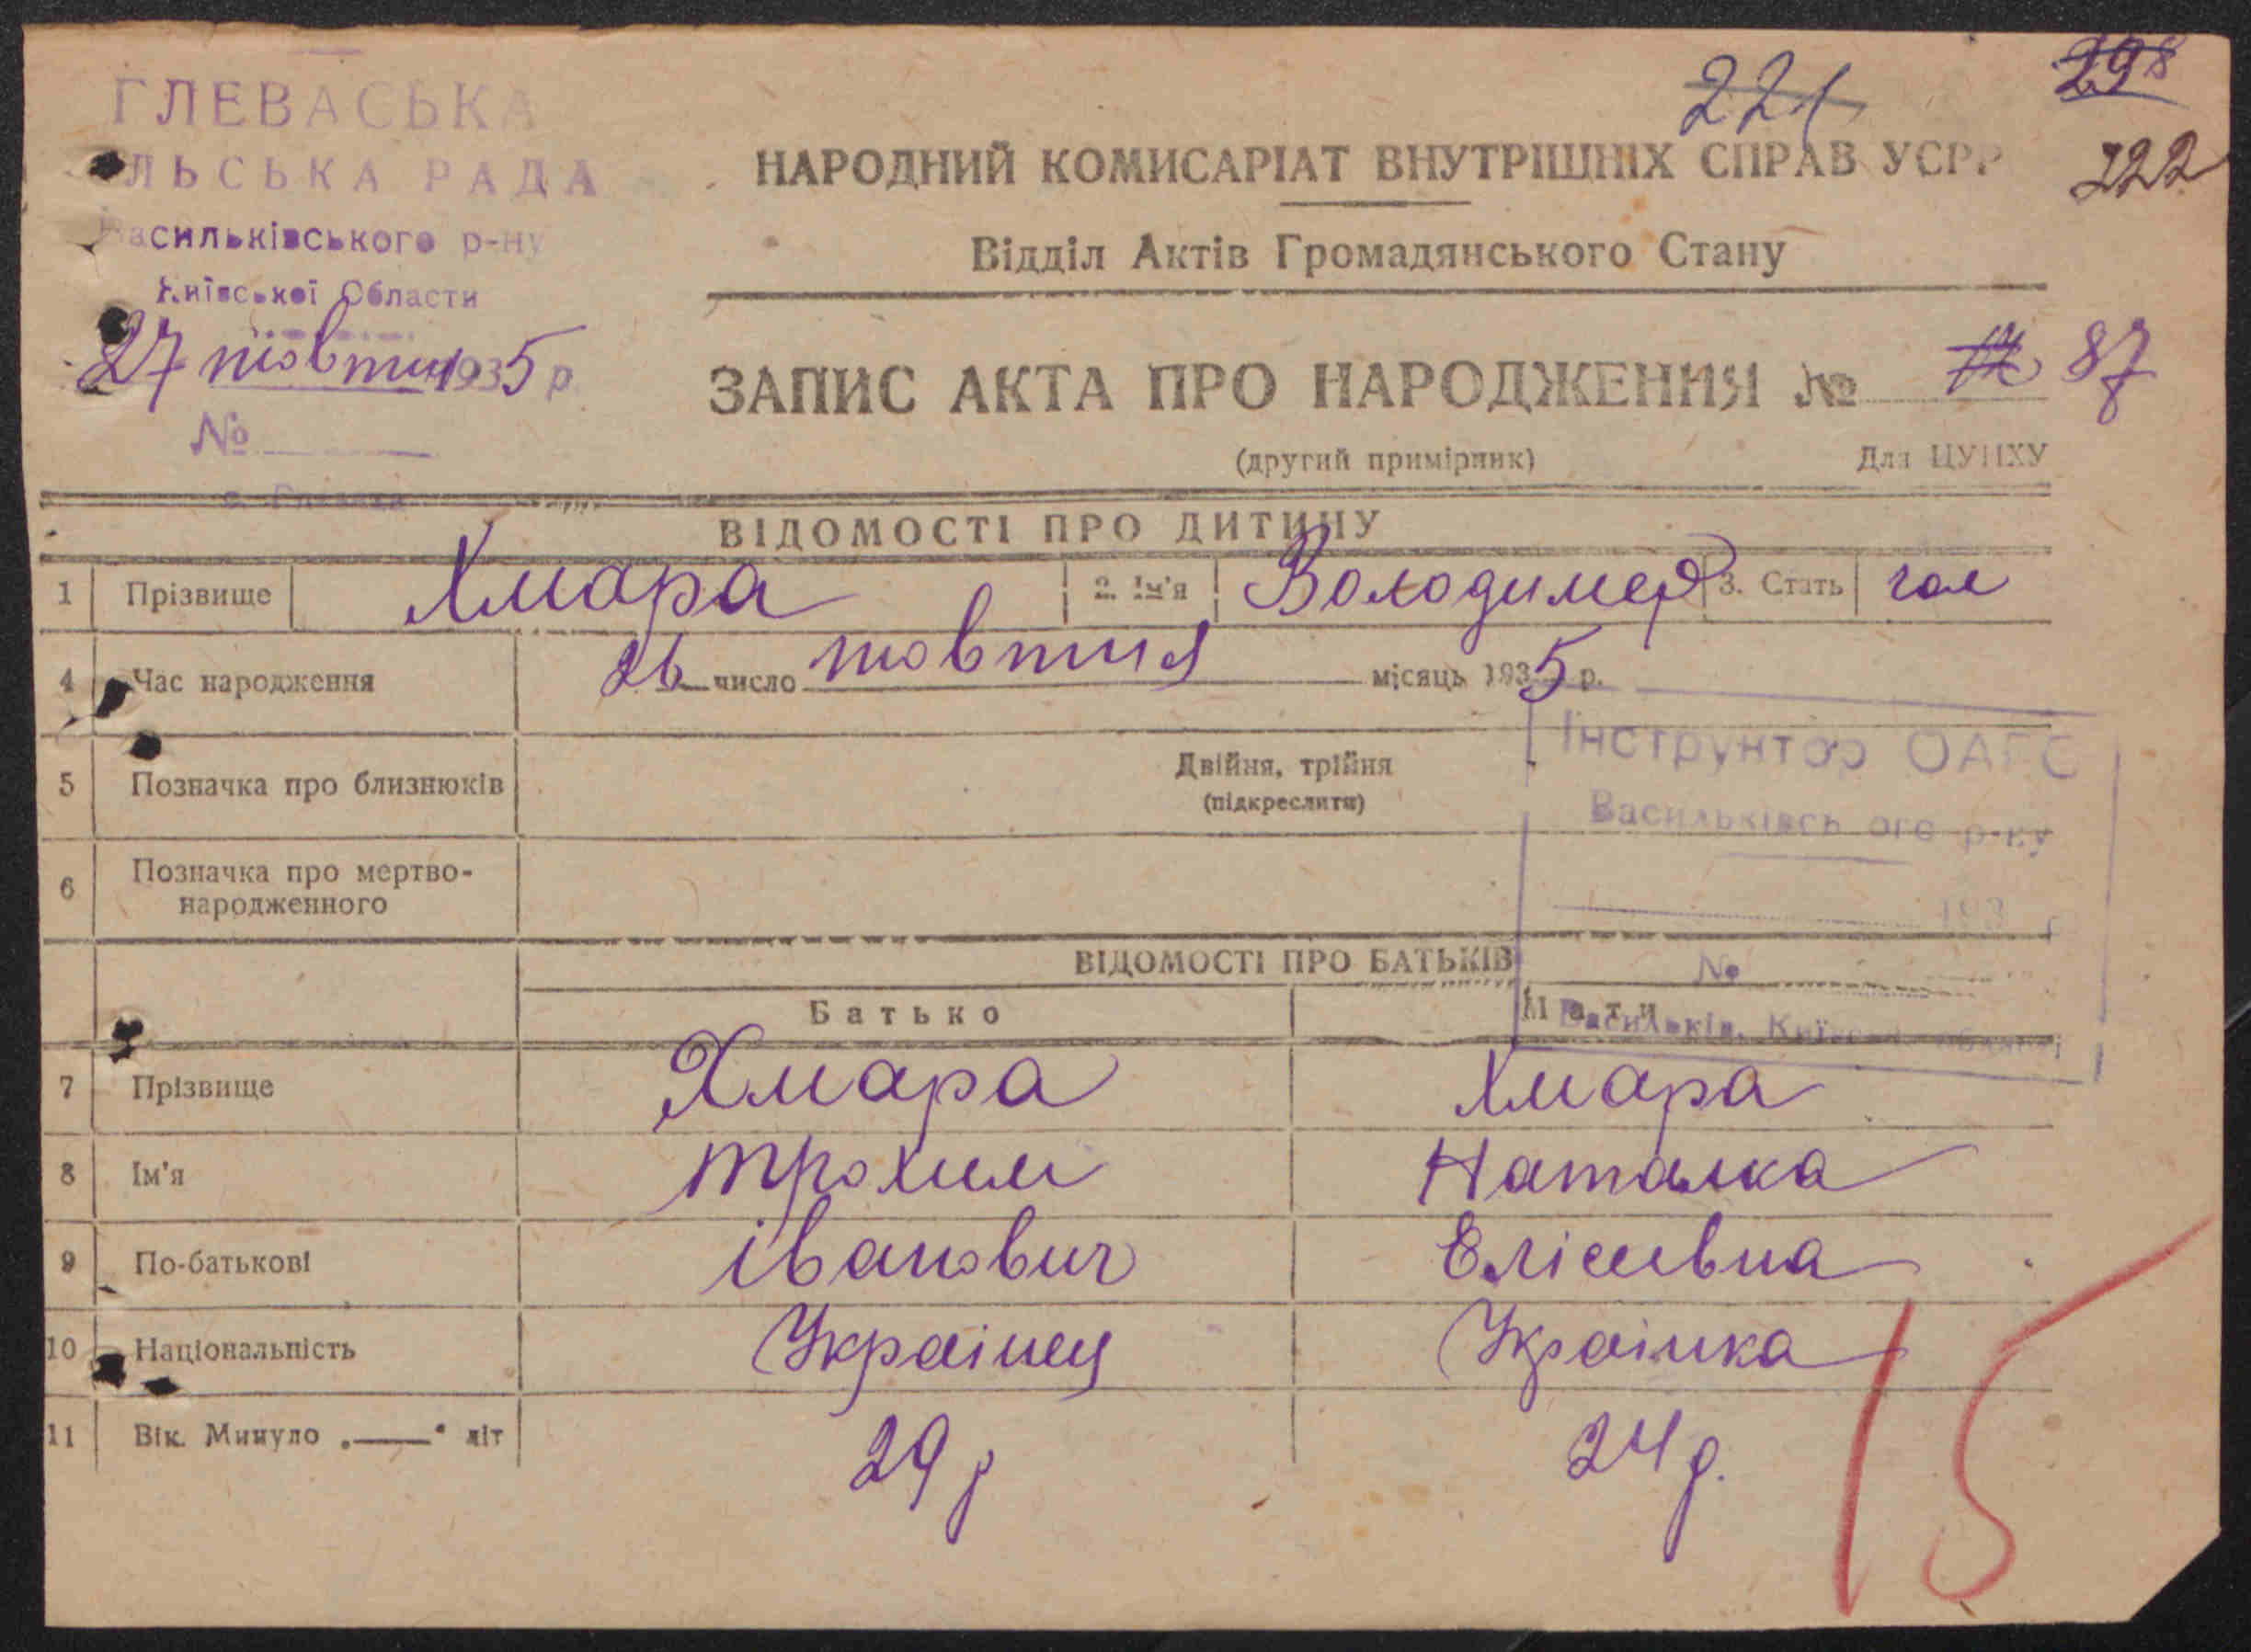 ГЛЕВАСЬКА
ЛЬСЬКА РАДА
Васильківського р-ну
Київської Области
27 жовтня 1935 р.
№
с. Глеваха
221
298
222
НАРОДНИЙ КОМИСАРІАТ ВНУТРІШНІХ СПРАВ УСРР
Відділ Актів Громадянського Стану
ЗАПИС АКТА ПРО НАРОДЖЕННЯ № 87
(другий примірник) Для ЦУНХУ
ВІДОМОСТІ ПРО ДИТИНУ
1 Прізвище Хмара 2. Ім'я Володимер 3. Стать чол
4 Час народження 26 число жовтня місяць 1935 р.
Інструктор ОАГС
Васильківсь ого р-ну
193
№
Васильків, Київ
5 Позначка про близнюків Двійня, трійня
(підкреслити)
6 Позначка про мертво-
народженного
ВІДОМОСТІ ПРО БАТЬКІВ
Батько Мати
7 Прізвище Хмара Хмара
8 Ім'я Трохим Наталка
9 По-батькові іванович Елісеївна
10 Національність Украінец Украінка
11 Вік. Минуло „ — “ літ 29 р 24 р.
15